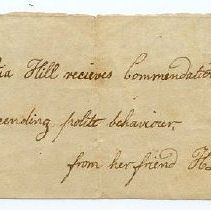 tia Hill recieves Commendation
cending polite behaviour,
from her friend H